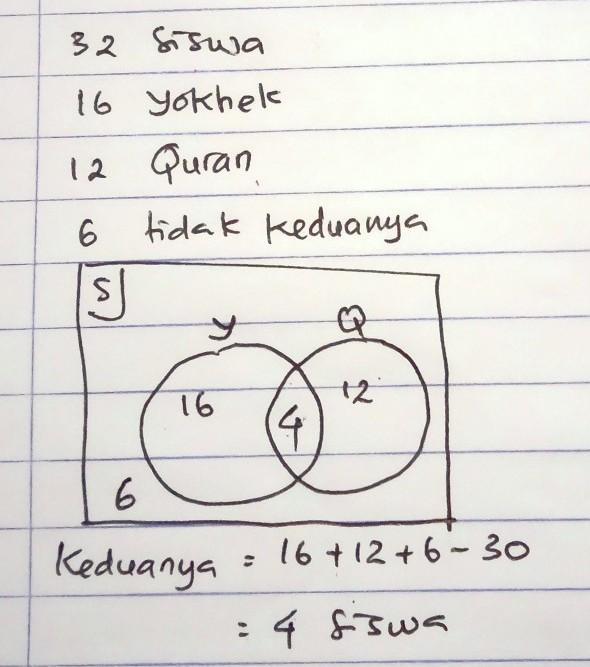 32 siswa
16 yokhek
12 Quran
6 tidak keduanya
S
y Q
16 4 12
6
Keduanya = 16 + 12 + 6 - 30
= 4 siswa